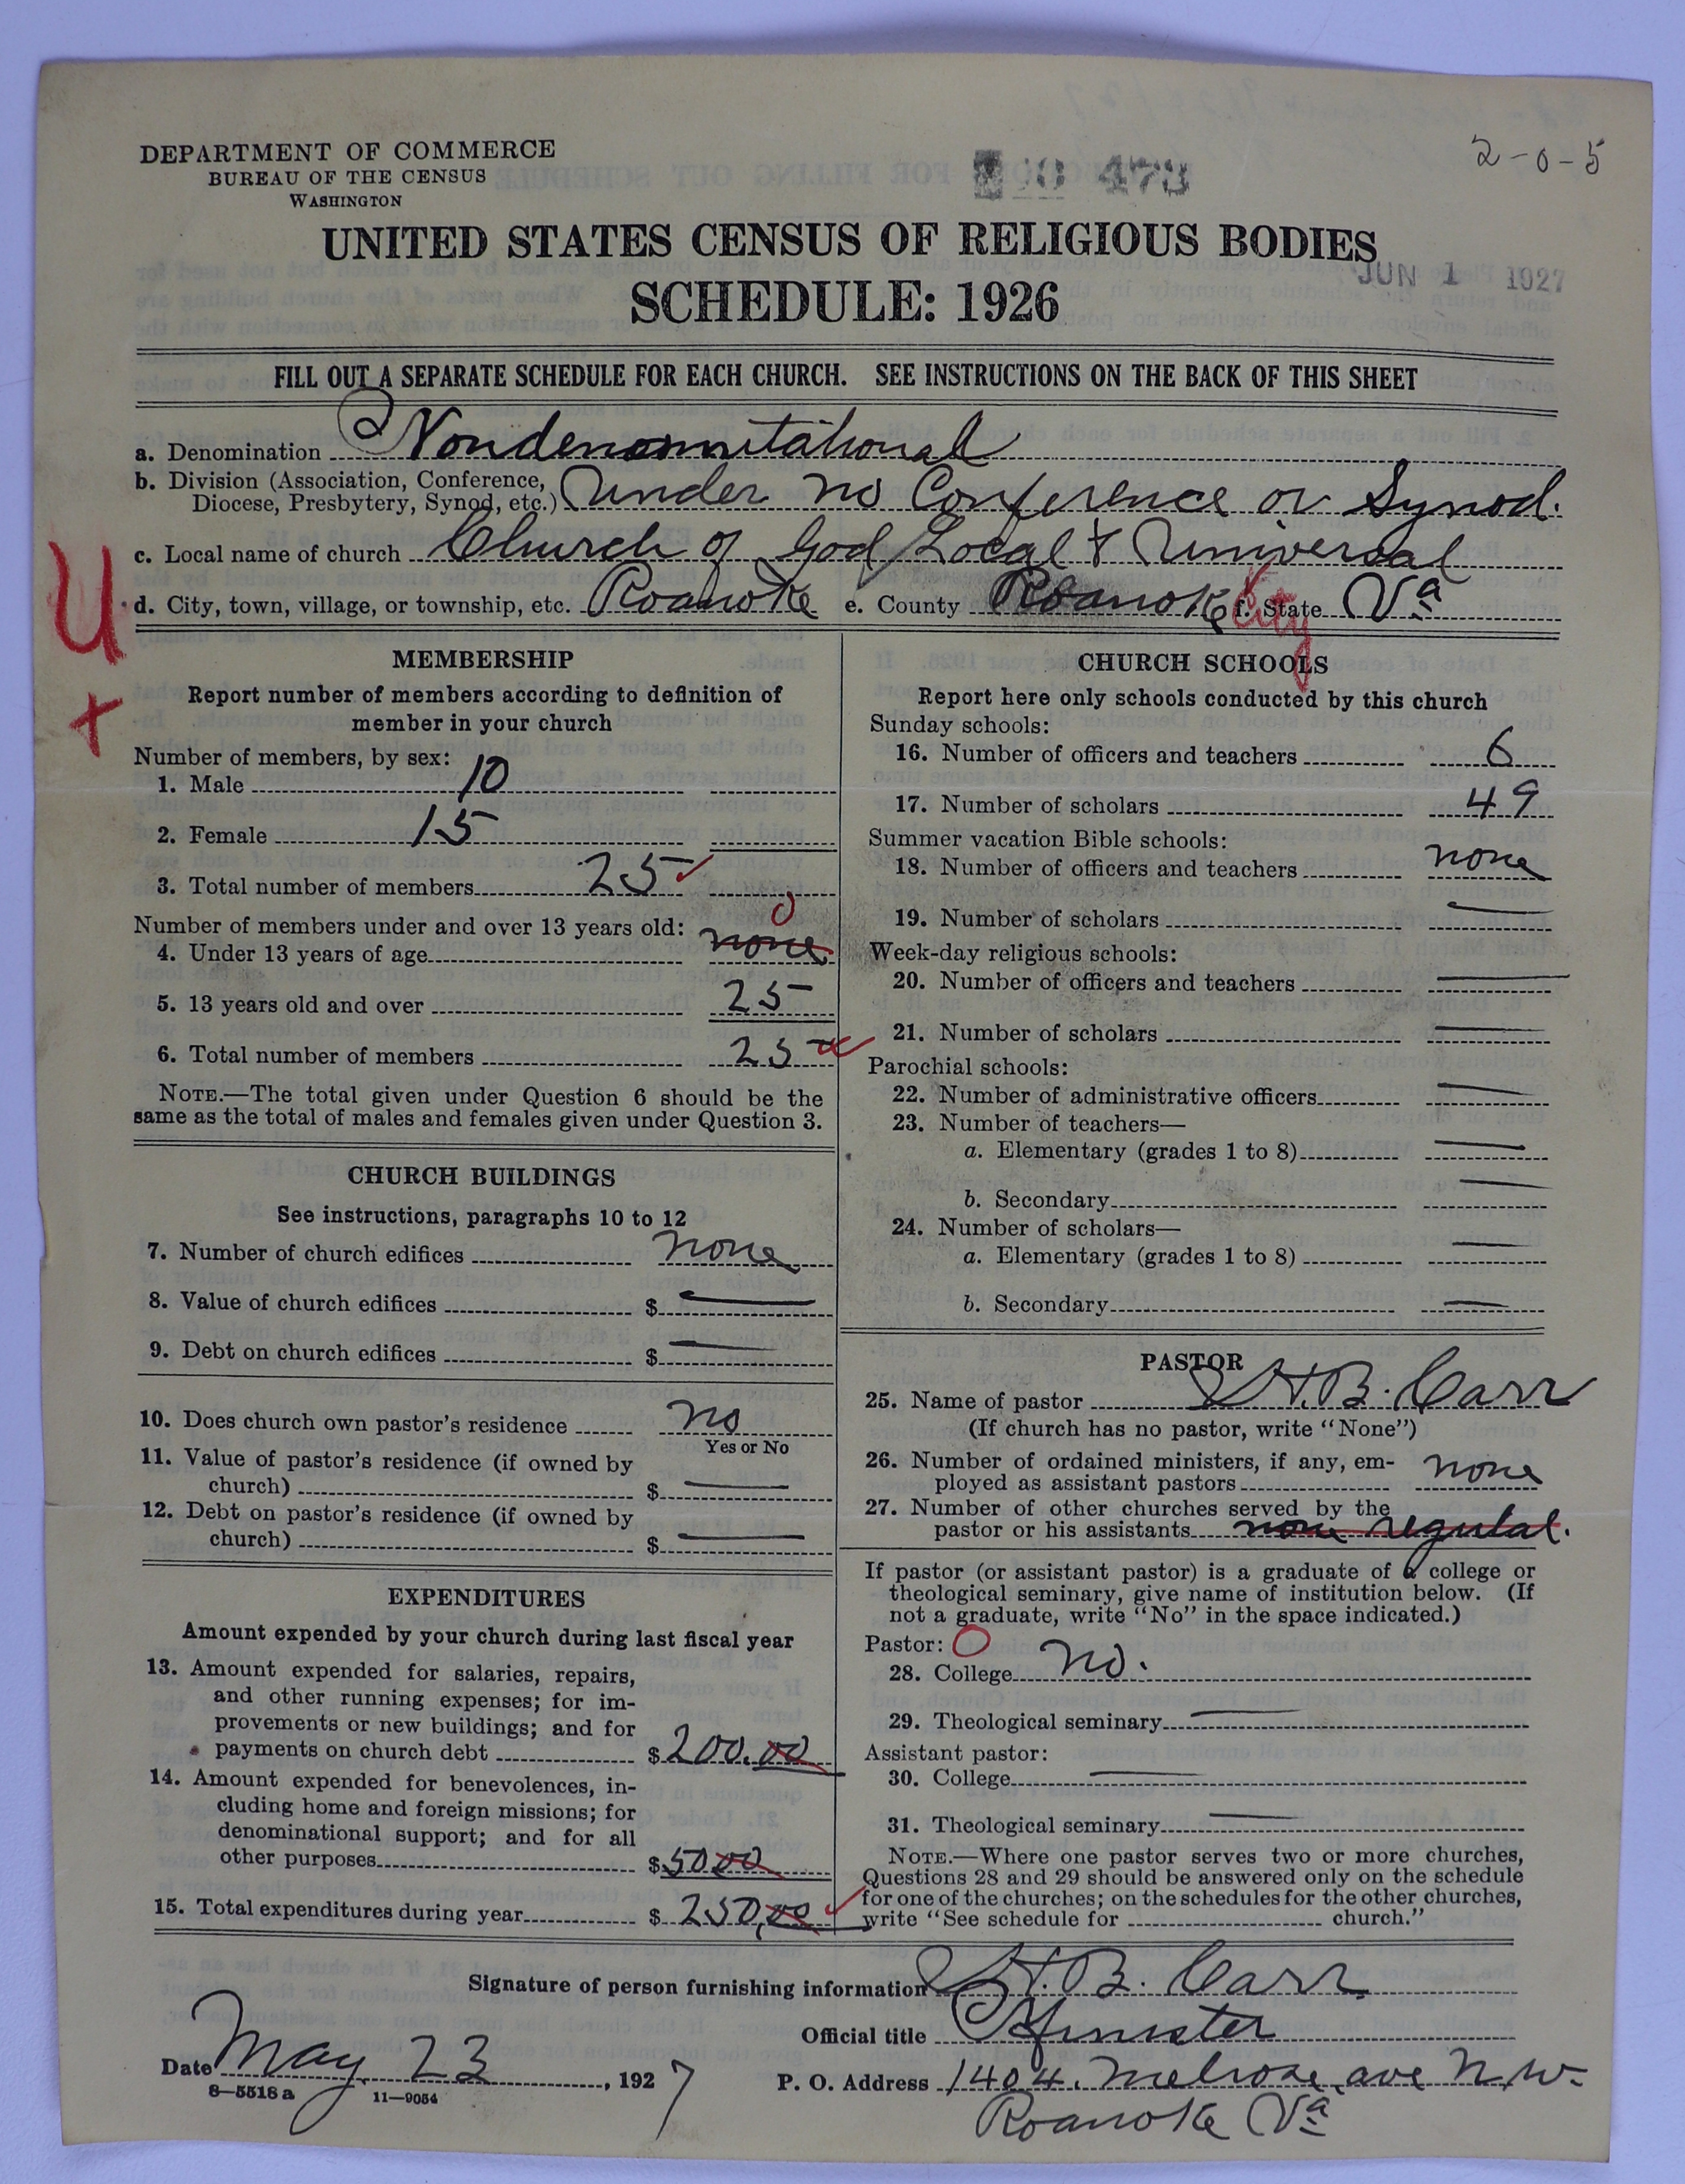 DEPARTMENT OF COMMERCE
BUREAU OF THE CENSUS
WASHINGTON
473
2-0-5
UNITED STATES CENSUS OF RELIGIOUS BODIES
JUN 1 1927
SCHEDULE: 1926
FILL OUT A SEPARATE SCHEDULE FOR EACH CHURCH. SEE INSTRUCTIONS ON THE BACK OF THIS SHEET
a. Denomination Nondenomnitational
b. Division (Association, Conference, Diocese, Presbytery, Synod, etc.) Under no Conference or Synod.
c. Local name of church Church of God Local & Universal
d. City, town, village, or township, etc. Roanoke e. County Roanoke City f. State Va
U
+
MEMBERSHIP
Report number of members according to definition of
member in your church
Number of members, by sex:
1. Male 10
2. Female 15
3. Total number of members 25
Number of members under and over 13 years old:
4. Under 13 years of age none 0
5. 13 years old and over 25
6. Total number of members 25
NOTE.—The total given under Question 6 should be the
same as the total of males and females given under Question 3.
CHURCH BUILDINGS
See instructions, paragraphs 10 to 12
7. Number of church edifices none
8. Value of church edifices $ —
9. Debt on church edifices $ —
10. Does church own pastor's residence no
Yes or No
11. Value of pastor's residence (if owned by
church) $ —
12. Debt on pastor's residence (if owned by
church) $ —
EXPENDITURES
Amount expended by your church during last fiscal year
13. Amount expended for salaries, repairs,
and other running expenses; for im-
provements or new buildings; and for
payments on church debt $ 200.00
14. Amount expended for benevolences, in-
cluding home and foreign missions; for
denominational support; and for all
other purposes $ 5000
15. Total expenditures during year $ 250,00
CHURCH SCHOOLS
Report here only schools conducted by this church
Sunday schools:
16. Number of officers and teachers 6
17. Number of scholars 49
Summer vacation Bible schools:
18. Number of officers and teachers none
19. Number of scholars —
Week-day religious schools:
20. Number of officers and teachers —
21. Number of scholars —
Parochial schools:
22. Number of administrative officers —
23. Number of teachers—
a. Elementary (grades 1 to 8) —
b. Secondary —
24. Number of scholars—
a. Elementary (grades 1 to 8) —
b. Secondary —
PASTOR
25. Name of pastor H. B. Carr
(If church has no pastor, write "None")
26. Number of ordained ministers, if any, em-
ployed as assistant pastors none
27. Number of other churches served by the
pastor or his assistants none regular.
If pastor (or assistant pastor) is a graduate of a college or
theological seminary, give name of institution below. (If
not a graduate, write "No" in the space indicated.)
Pastor: O
28. College no.
29. Theological seminary —
Assistant pastor:
30. College —
31. Theological seminary —
NOTE.—Where one pastor serves two or more churches,
Questions 28 and 29 should be answered only on the schedule
for one of the churches; on the schedules for the other churches,
write "See schedule for church."
Signature of person furnishing information H. B. Carr
Official title Minister
Date May 23, 1927
P. O. Address 1404. Melrose ave N.W.
Roanoke Va
8—5518 a 11—9054